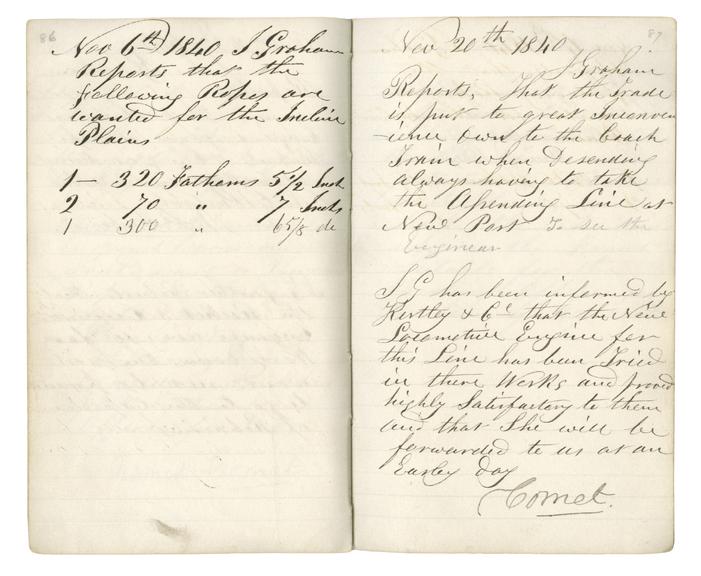 86
Nov 6th 1840, J Graham
Reports that the
following Ropes are
wanted for the Incline
Plains
1 – 320 Fathems 5 1/2 Inch
2 70 " 7 Inchs
1 300 " 6 5/8 do
87
Nov 20th 1840
J Graham
Reports, that the trade
is put to great Inconven
-ience own to the Coach
Train when Desending
always having to take
the Asending Line at
New Port To see the
Enginear
J G has been informed by
Kertley & Co that the New
Locomotive Engine for
this Line has been Tried
in there Works and proved
highly Satisfactory to them
and that She will be
forwarded to us at an
Earley Day
Comet.